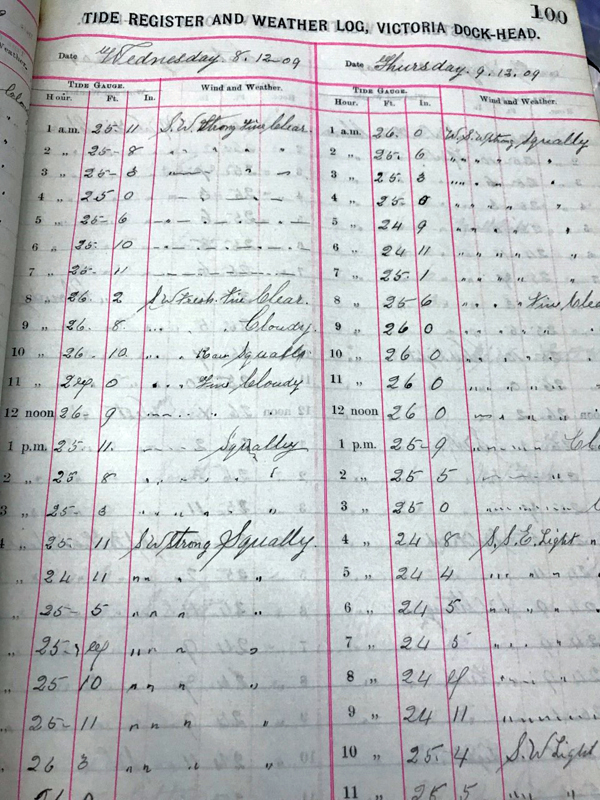 100
TIDE REGISTER AND WEATHER LOG, VICTORIA DOCK-HEAD.
Date Wednesday. 8. 12. 09
TIDE GAUGE. Wind and Weather.
Hour. Ft. In.
1 a.m. 25 11 S.W. Strong Fine Clear.
2 „ 25 8 „ „ „ „
3 „ 25 3 „ „
4 „ 25 0 „ „ „
5 „ 25 6 „ „ „ „
6 „ 25 10 „ „ „ „
7 „ 25 11 „ „ „ „
8 „ 26 2 S W Fresh Fine Clear.
9 „ 26 8 „ „ Cloudy.
10 „ 26 10 „ „ Squalls
11 „ 27 0 „ „ Fine Cloudy
12 noon 26 9 „ „ „
1 p.m. 25 11 „ „ Squally
2 „ 25 8 „ „ „ „
3 „ 25 3 „ „ „ „
4 „ 25 11 S W Strong Squally.
„ 24 11 „ „ „ „
„ 25 5 „ „ „ „
„ 25 „ „ „ „
„ 25 10 „ „ „ „
„ 25 11 „ „ „ „
„ 26 3 „ „ „ „
Date Thursday. 9. 12. 09
TIDE GAUGE. Wind and Weather.
Hour. Ft. In.
1 a.m. 26 0 W.S.W Strong Squally
2 „ 25 6 „ „ „ „
3 „ 25 3 „ „ „ „
4 „ 25 0 „ „ „ „
5 „ 24 9 „ „ „ „
6 „ 24 11 „ „ „ „
7 „ 25 1 „ „ „ „
8 „ 25 6 „ „ „ Fine Clea
9 „ 26 0 „ „ „ „
10 „ 26 0 „ „ „ „
11 „ 26 0 „ „ „ „
12 noon 26 0 „ „ „ „
1 p.m. 25 9 „ „ „ Cl
2 „ 25 5 „ „ „
3 „ 25 0 „ „ „
4 „ 24 8 S.S.E. Light „
5 „ 24 4 „ „ „ „
6 „ 24 5 „ „ „ „
7 „ 24 5 „ „ „ „
8 „ 24 „ „
9 „ 24 11 „ „ „
10 „ 25 4 S.W Light
11 „ 25 5 „ „ „